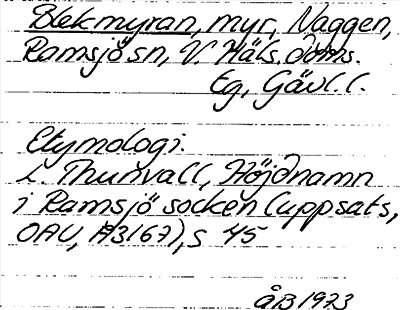 Blekmyran, myr, Naggen,
Ramsjö sn, V. Häls. doms.
Eg, Gävl. l.
Etymologi:
L. Thunvall, Höjdnamn
i Ramsjö socken (uppsats,
OAU, A3167), s 45
åB 1973